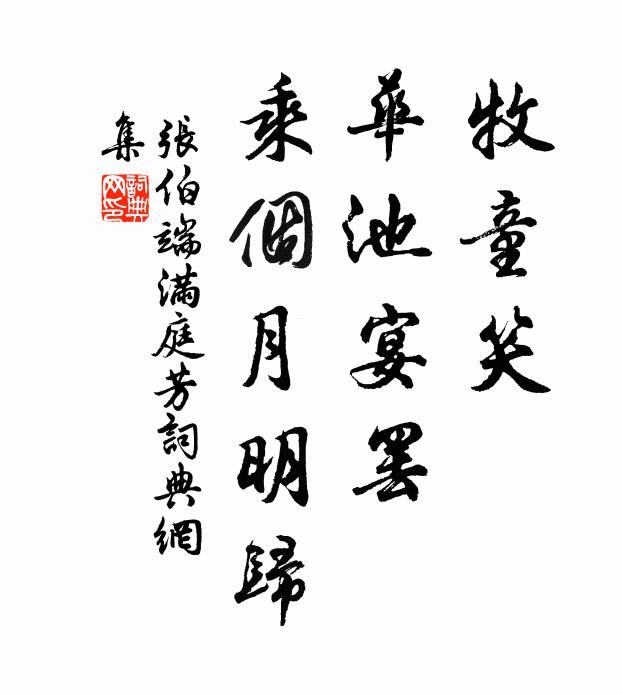 牧童笑
華池宴罷
乘個月明歸
張伯端滿庭芳詞典網
集
詞典網印